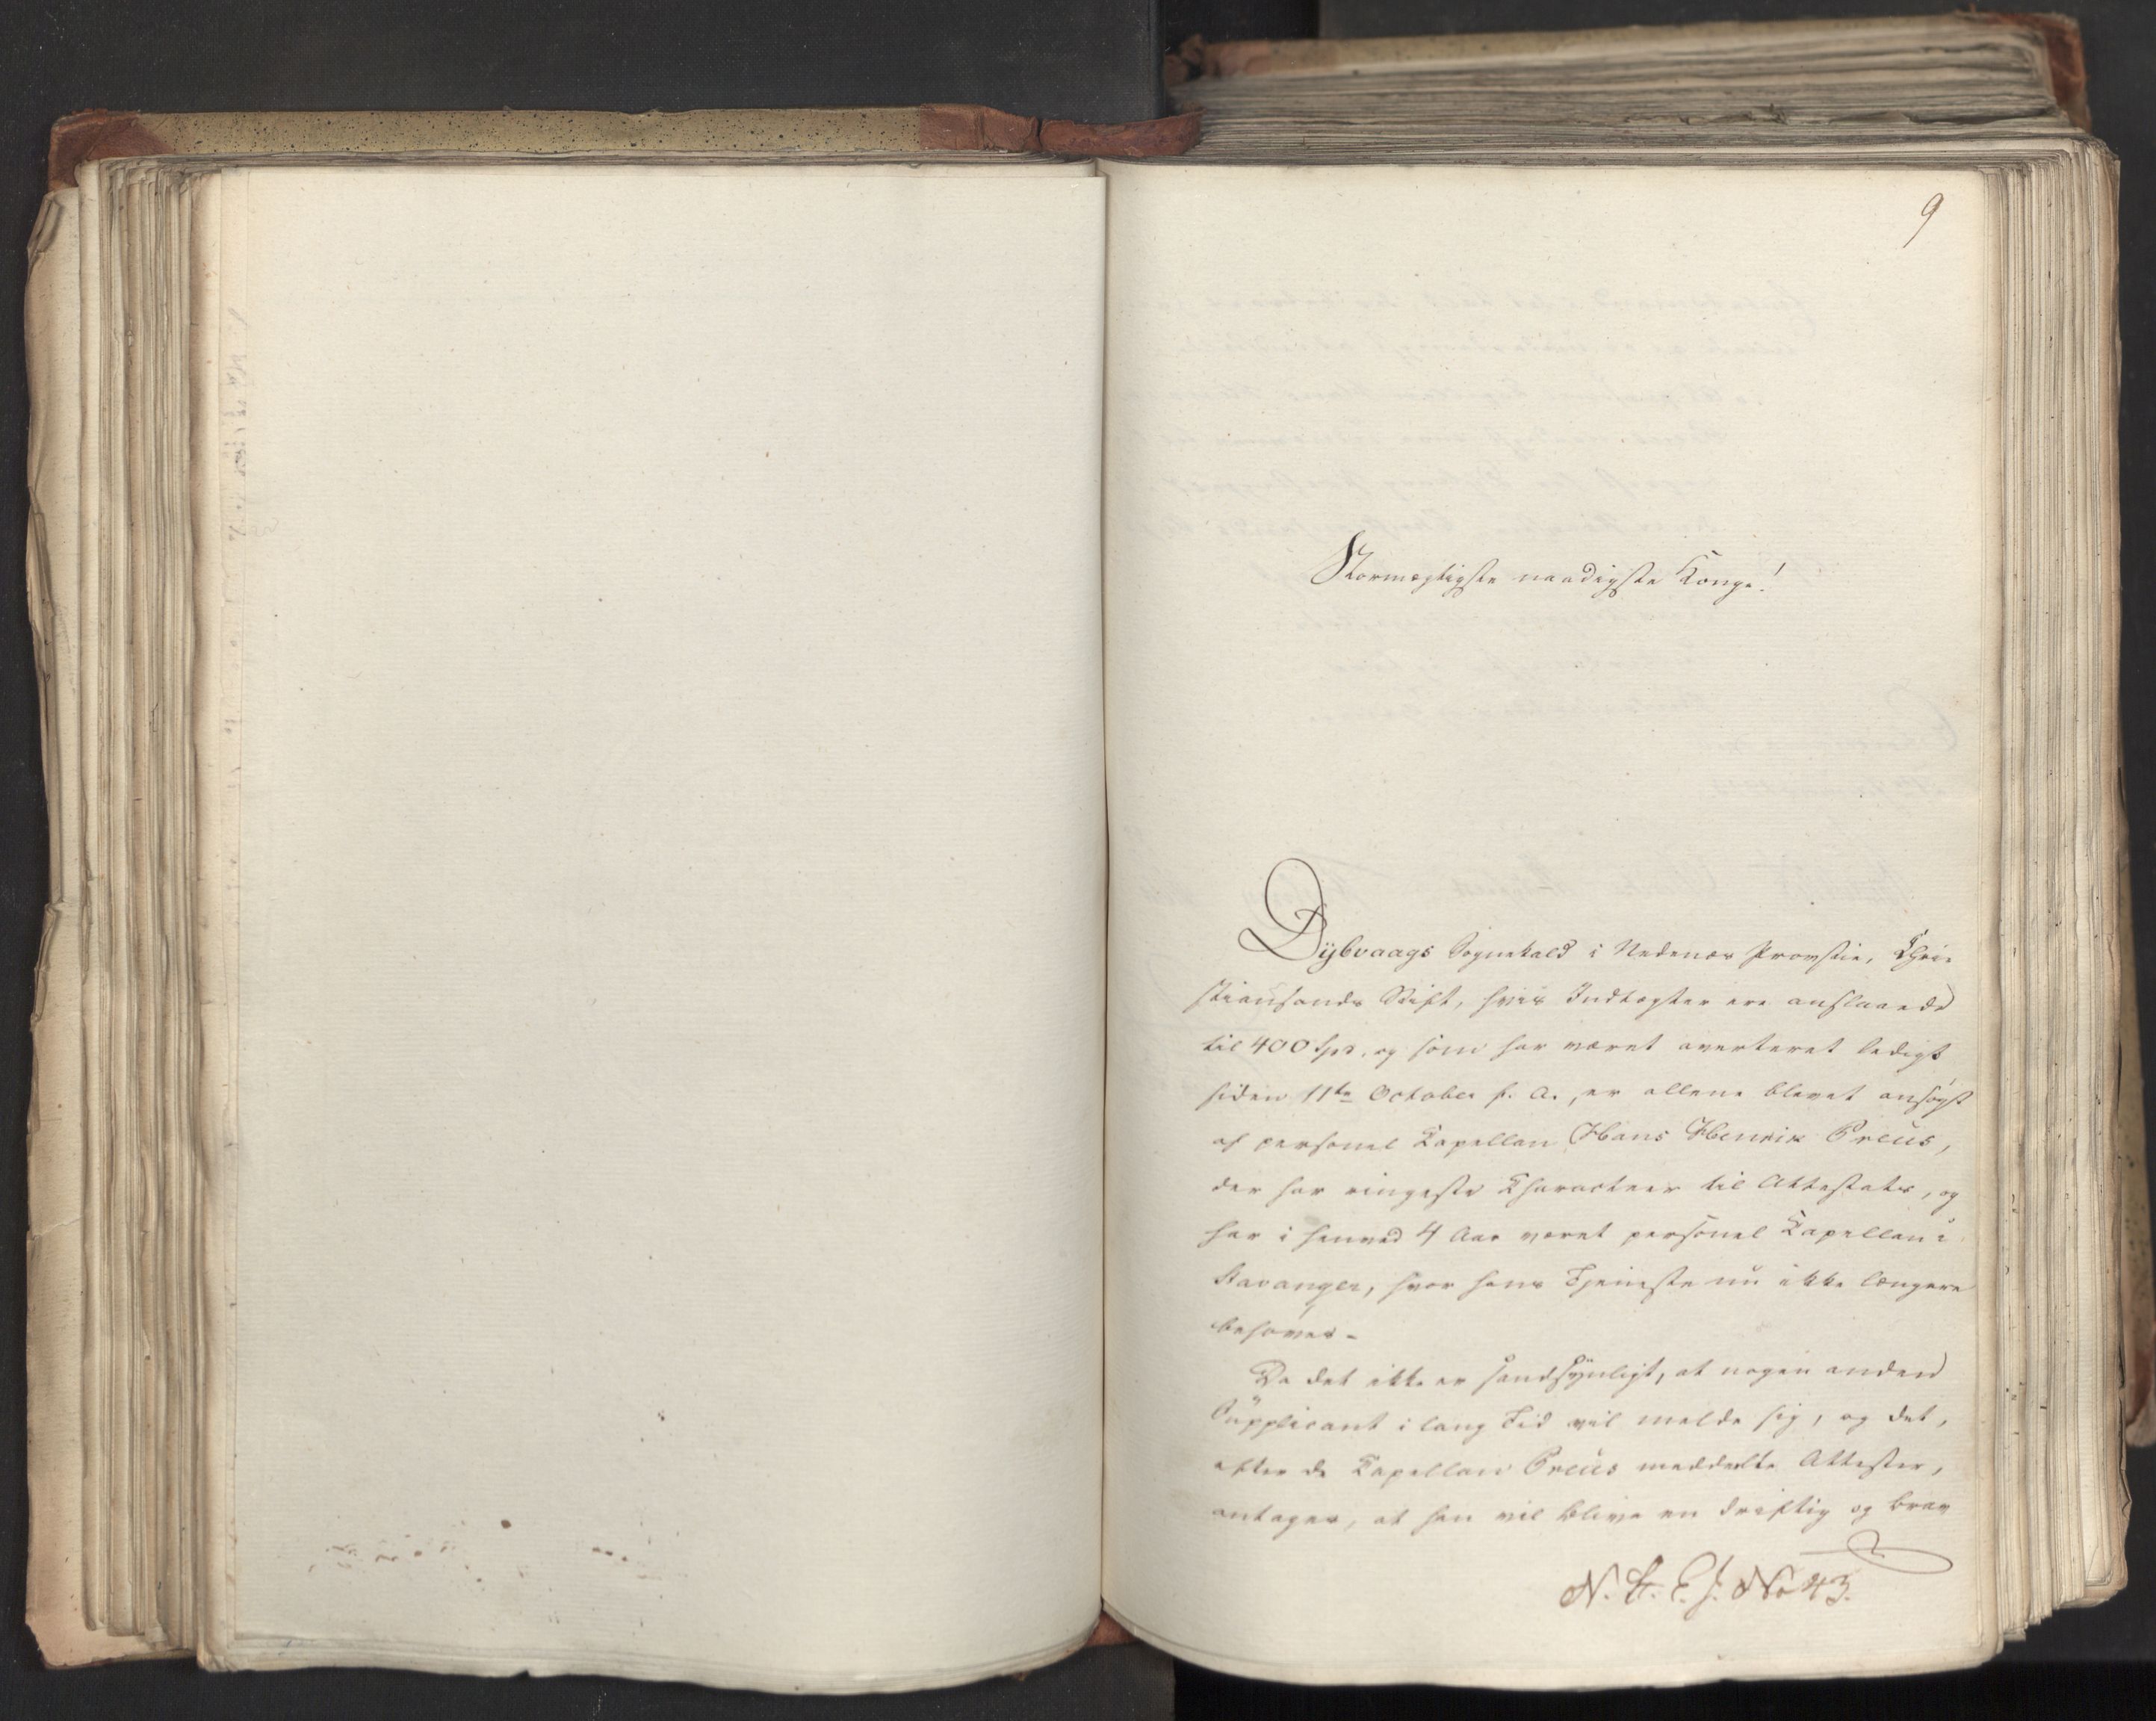 9
Stormægtigste naadigste Konge!
Dÿbvaags Sognekald i Nedenæs Provstie, Chri-
stiansands Stift, hvis Indtægter ere anslaaede
til 400 Spd, og som har været averteret ledigt
siden 11te October f. A., er allene blevet ansøgt
af personel Kapellan Hans Henrik Preüs,
der har ringeste Charakteer til Attestats, og
har i henved 4 Aar været personel Kapellan i
Stavanger, hvor hans Tjeneste nu ikke længere
behøves-
Da det ikke er sandsÿnligt, at nogen anden
Supplicant i lang Tid vil melde sig, og det,
efter de Kapellan Preüs meddeelte Attester,
antages, at han vil blive en driftig og brav
N. St. E. J. No 43.